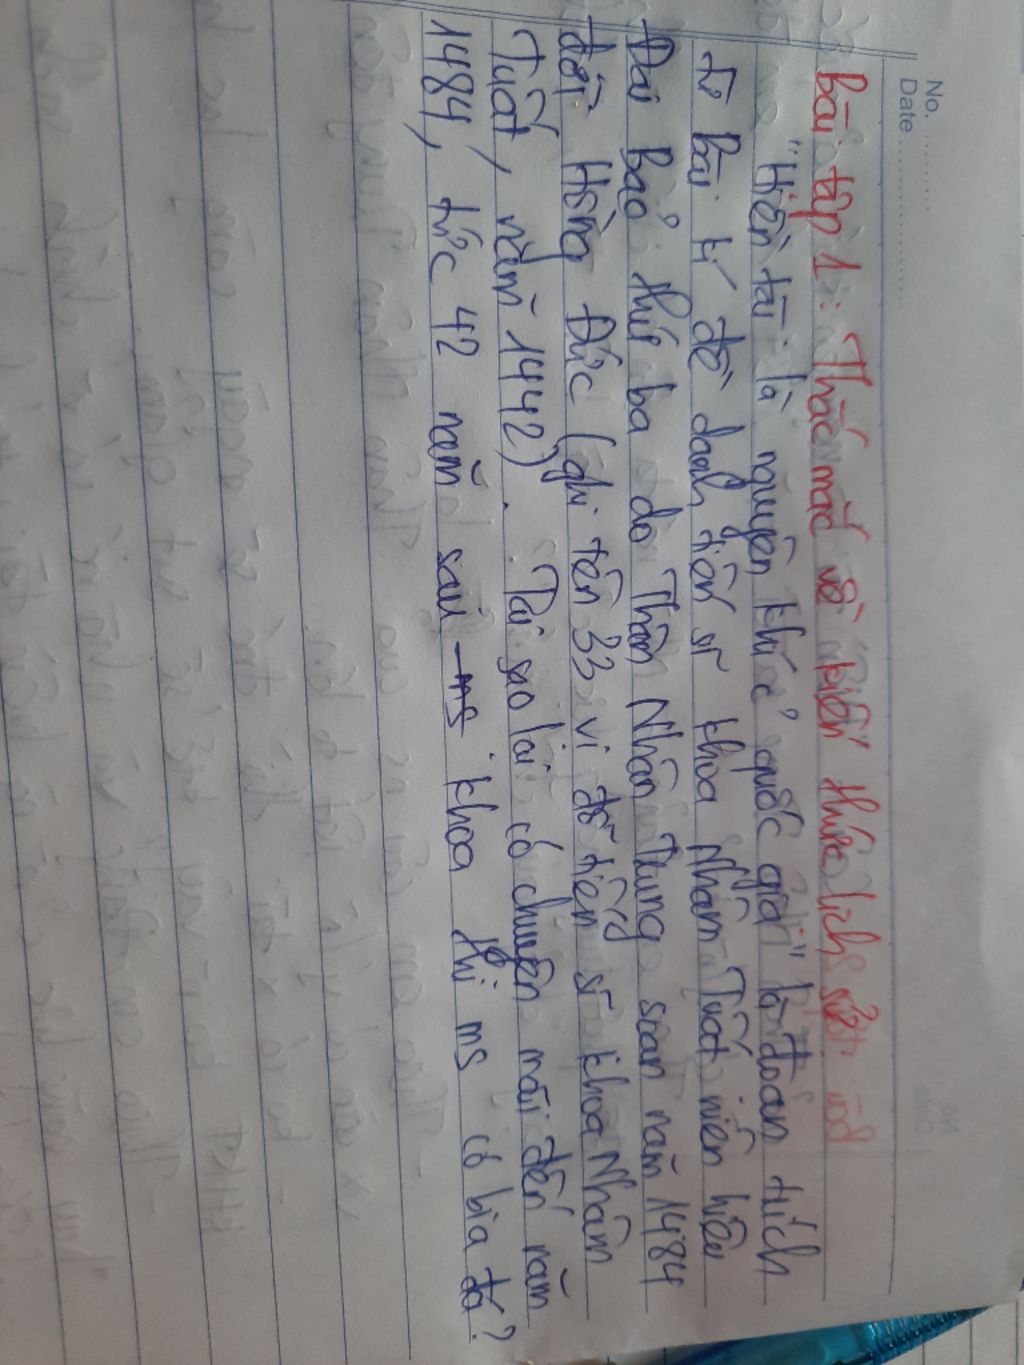 No. ..........
Date ....................
Bài tập 1: Thắc mắc về kiến thức lịch sử:
"Hiền tài là nguyên khí quốc gia" là đoạn trích
Từ bài kí đề danh tiến sĩ khoa Nhâm Tuất niên hiệu
Đại Bảo thứ ba do Thân Nhân Trung soạn năm 1484
đời Hồng Đức (ghi tên 33 vị đỗ tiến sĩ khoa Nhâm
Tuất, năm 1442). Tại sao lại có chuyện mãi đến năm
1484, tức 42 năm sau khoa thi ms có bia đá?